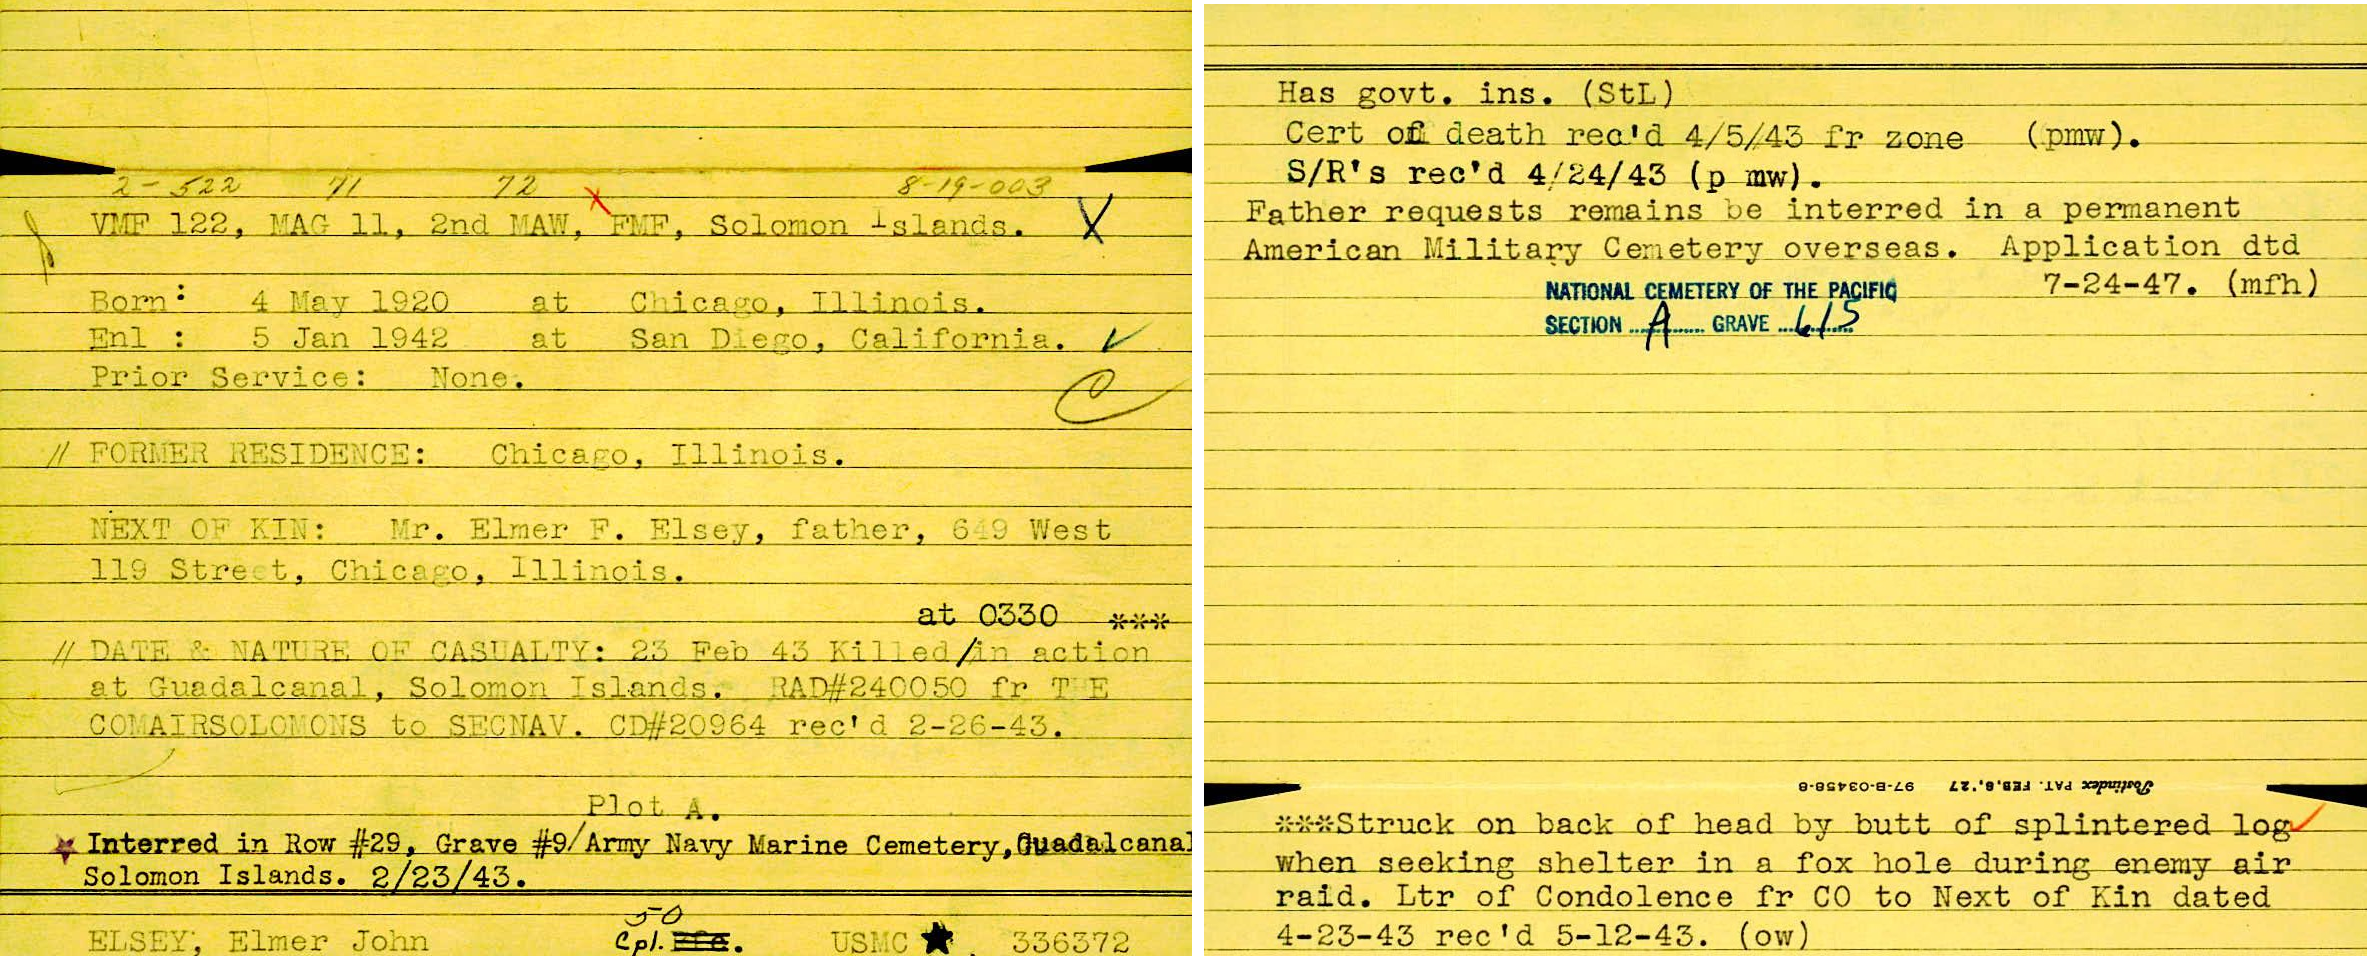 2-522 71 72 8-19-003
X
VMF 122, MAG 11, 2nd MAW, FMF, Solomon Islands. X
Born: 4 May 1920 at Chicago, Illinois.
Enl : 5 Jan 1942 at San Diego, California. ✓
Prior Service: None.
// FORMER RESIDENCE: Chicago, Illinois.
NEXT OF KIN: Mr. Elmer F. Elsey, father, 649 West
119 Street, Chicago, Illinois.
at 0330 ***
// DATE & NATURE OF CASUALTY: 23 Feb 43 Killed/in action
at Guadalcanal, Solomon Islands. RAD#240050 fr THE
COMAIRSOLOMONS to SECNAV. CD#20964 rec'd 2-26-43.
Plot A.
Interred in Row #29, Grave #9/Army Navy Marine Cemetery,Guadalcanal
Solomon Islands. 2/23/43.
50
ELSEY, Elmer John Cpl. Pfc. USMC ★ 336372
Has govt. ins. (StL)
Cert of death rec'd 4/5/43 fr zone (pmw).
S/R's rec'd 4/24/43 (p mw).
Father requests remains be interred in a permanent
American Military Cemetery overseas. Application dtd
7-24-47. (mfh)
NATIONAL CEMETERY OF THE PACIFIC
SECTION A GRAVE 615
Postindex PAT. FEB. 8, '27 97-B-03458-8
***Struck on back of head by butt of splintered log
when seeking shelter in a fox hole during enemy air
raid. Ltr of Condolence fr CO to Next of Kin dated
4-23-43 rec'd 5-12-43. (ow)